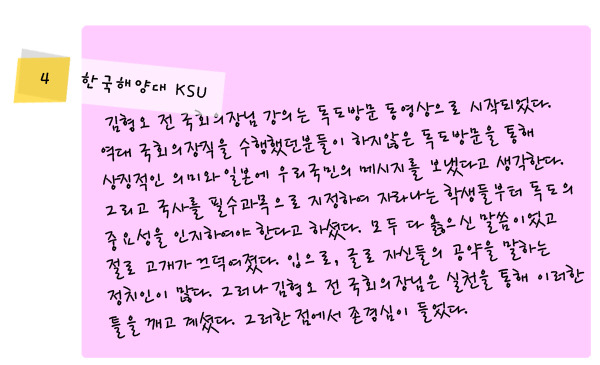 4
한국해양대 KSU
김형오 전 국회의장님 강의는 독도방문 동영상으로 시작되었다.
역대 국회의장직을 수행했던분들이 하지않은 독도방문을 통해
상징적인 의미와 일본에 우리국민의 메시지를 보냈다고 생각한다.
그리고 국사를 필수과목으로 지정하여 자라나는 학생들부터 독도의
중요성을 인지하여야 한다고 하셨다. 모두 다 옳으신 말씀이었고
절로 고개가 끄덕여졌다. 입으로, 글로 자신들의 공약을 말하는
정치인이 많다. 그러나 김형오 전 국회의장님은 실천을 통해 이러한
틀을 깨고 계셨다. 그러한 점에서 존경심이 들었다.